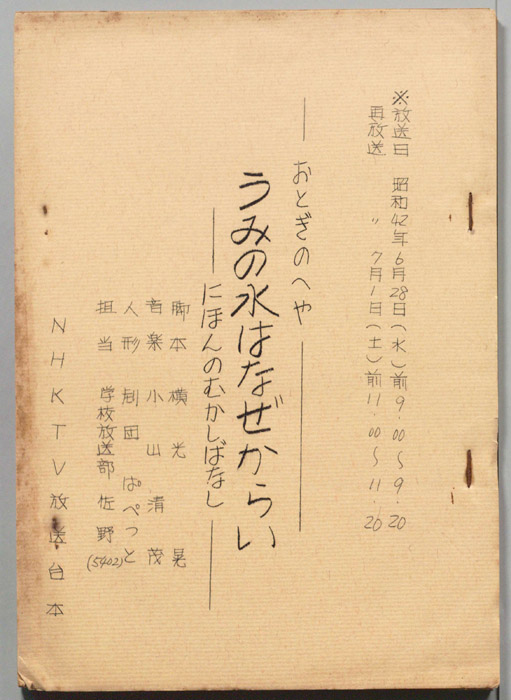 ※放送日 昭和42年6月28日(水)前9.00~9.20
再放送 〃 7月1日(土)前11.00~11.20
おとぎのへや
うみの水はなぜからい
にほんのむかしばなし
脚本 横光晃
音楽 小山清茂
人形 劇団ぱぺっと
担当 学校放送部 佐野(5402)
NHKTV放送台本